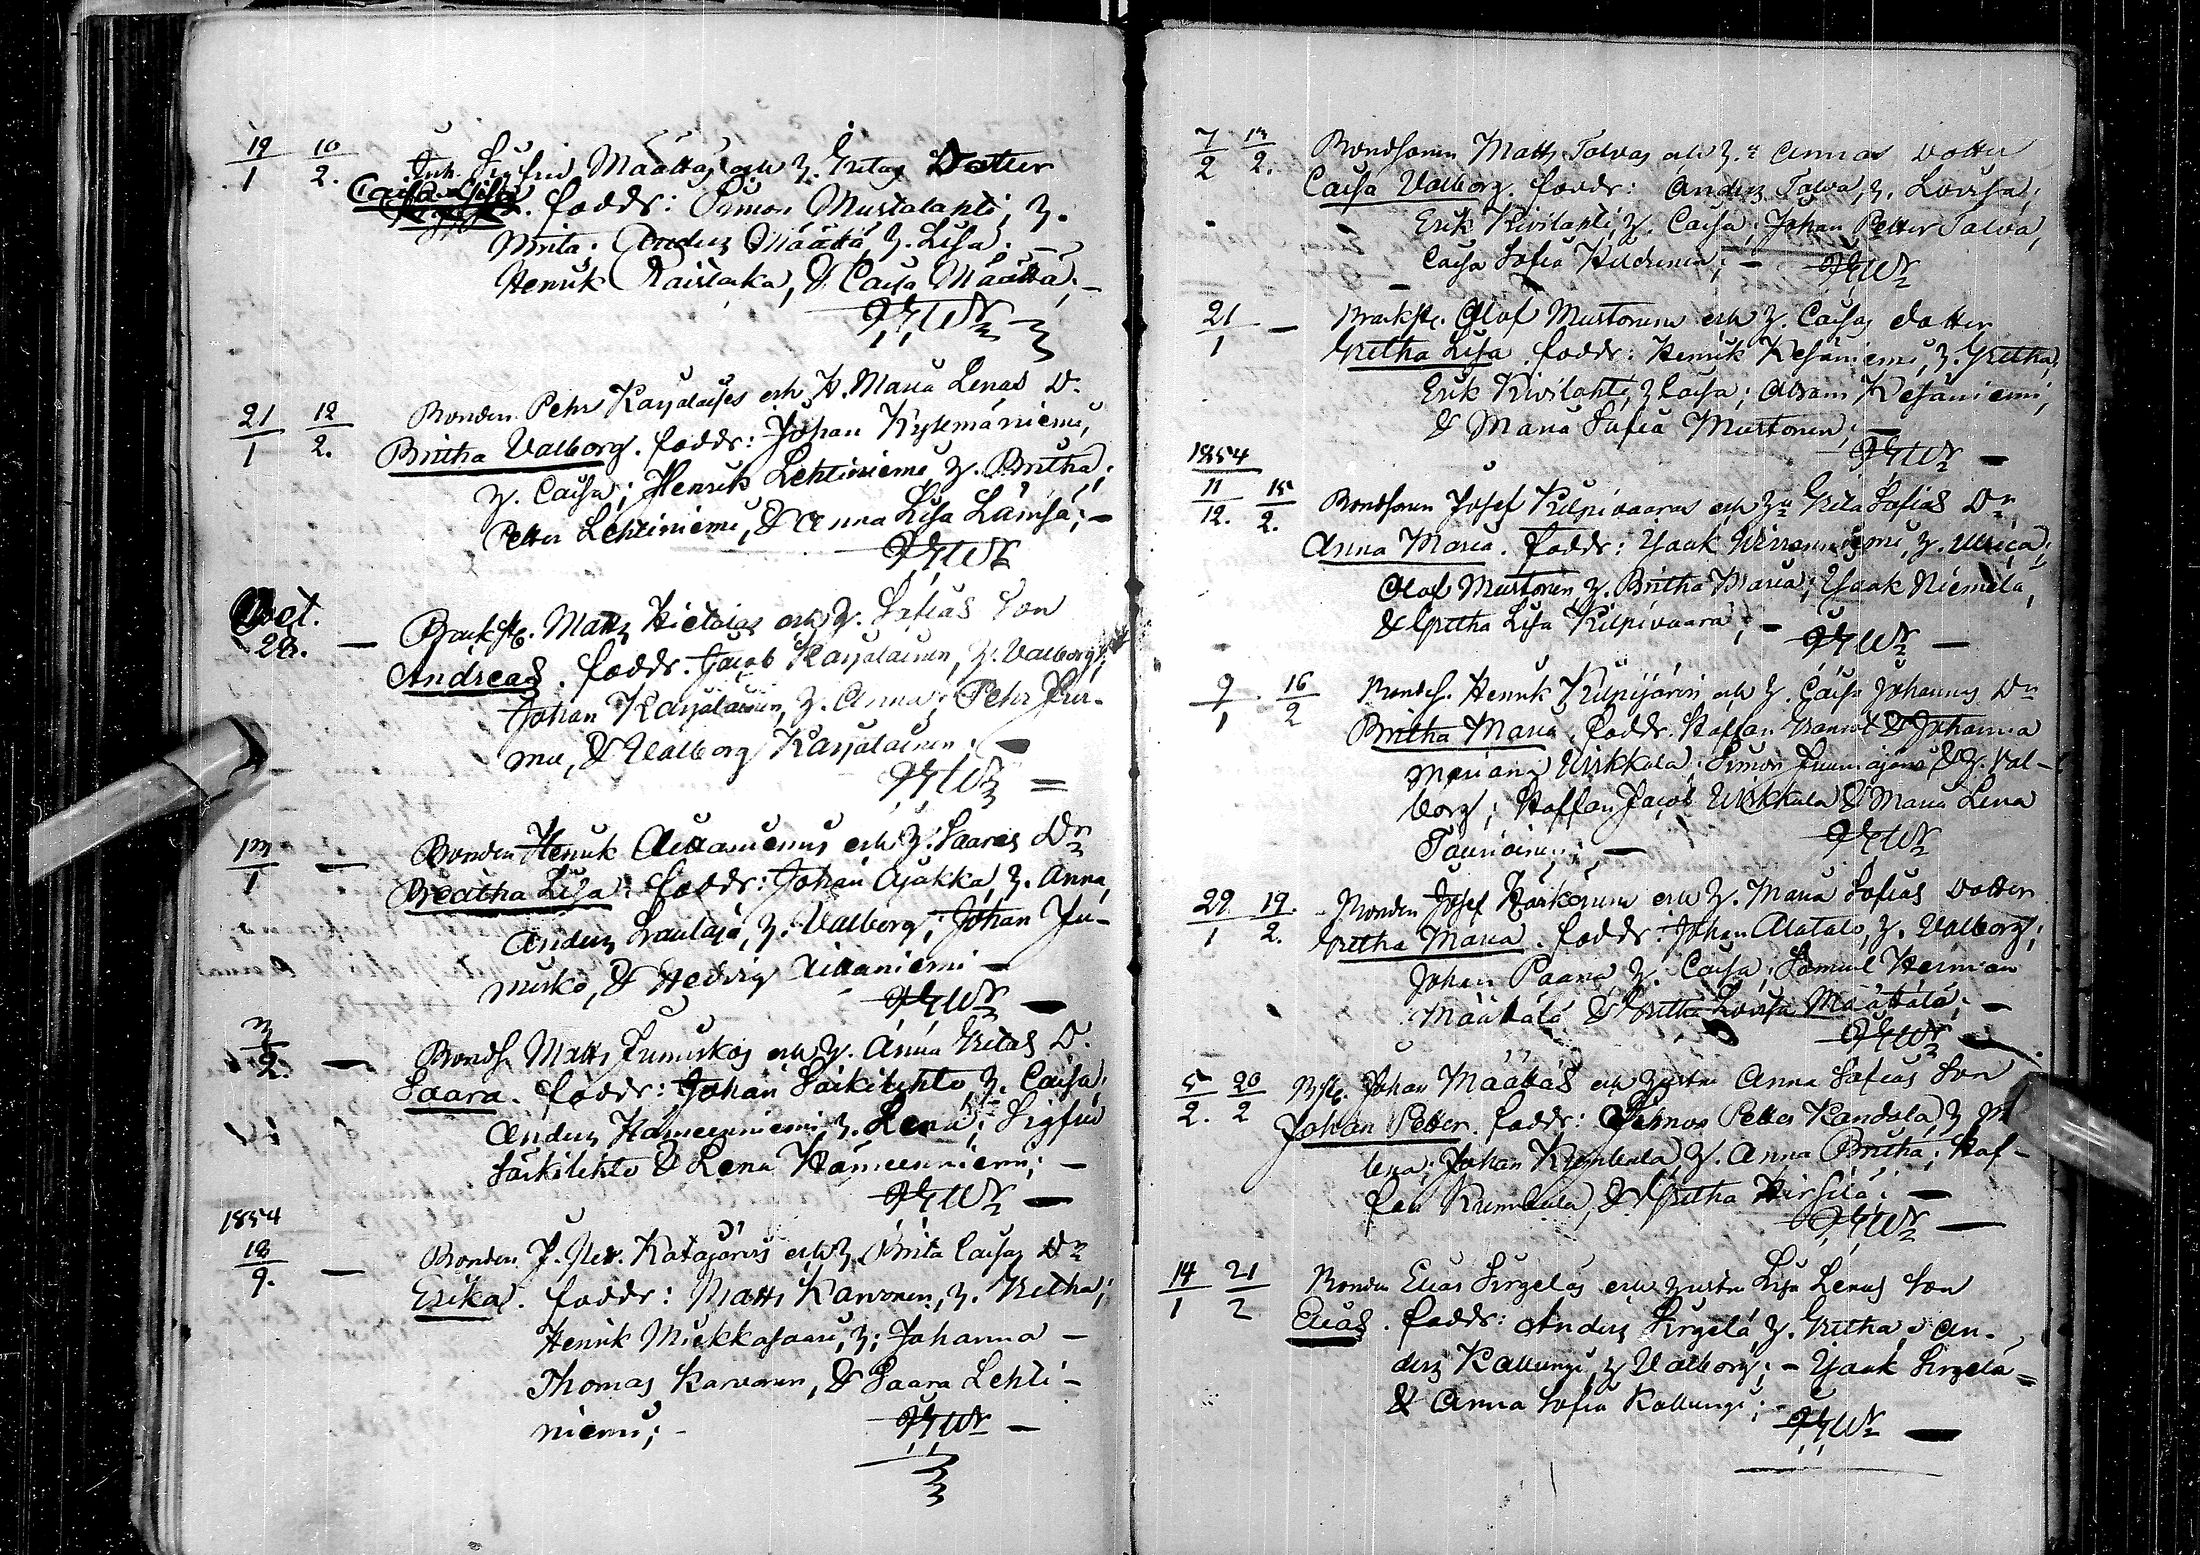 19/1 10/2. Inh. Sigfrid Määttäs och H. Gretas Dotter
Caisa Lisa. faddr: Simon Mustalahti, H.
Brita; Anders Määttä, H. Lisa. —
Henrik Raistaka, & Caisa Määttä; —
21/1 12/2. Bonden Pehr Karjalaises och H. Maria Lenas D.
Britha Valborg. faddr: Johan Kylemäniemi,
H. Caisa; Henrik Lehtiniemi H. Britha;
Petter Lehtiniemi, & Anna Lisa Lämsä; —
Oct.
28. — Backst. Matts Hietalas och H. Sofias Son
Andreas. faddr. Jacob Karjalainen, H. Valborg;
Johan Karjalainen, H. Anna; Pehr Jur-
mu, & Valborg Karjalainen; —
13/1 — Bonden Henrik Aittaniemis och H. Saaras Dr
Breatha Lisa. faddr: Johan Ajakka, H. Anna,
Anders Lautaja, H. Valborg; Johan Ju-
musko, & Hedvig Aittaniemi —
3/2. — Bonds. Matts Jumiskos och H. Anna Gretas D.
Saara. faddr: Johan Säikilehto, H. Caisa;
Anders Hämeenniemi, H. Lena; Sigfrid
Säikilehto & Lena Hämeenniemi; —
1854
18/9. — Bonden J. Katajärvis och H. Brita Caisas Dr
Erika. faddr: Matts Karvonen, H. Gretha;
Henrik Miekkasaari, H; Johanna —
Thomas Karvonen, & Saara Lehti-
niemi; —
7/2 13/2. Bondsonen Matts Talvas och H. Annas Dotter
Caisa Valborg. faddr: Anders Talva, H. Lovisa;
Erik Kivilahti, H. Caisa; Johan Petter Talva,
Caisa Sofia; —
21/1 — Backst. Olof Mustonens och H. Caisas dotter
Gretha Lisa. faddr: Henrik Kesäniemi, H. Gretha,
Erik Kivilahti, H Caisa; Abram Kesäniemi,
& Maria Sofia Mustonen; —
1854
11/12. 15/2. Bondsonen Josef Kilpivaaras och Hu Greta Sofias Dr,
Anna Maria. faddr: Isaak, H. Ulrica;
Olof Mustonen H. Britha Maria; Isaak Niemelä,
& Gretha Lisa Kilpivaara; —
9/1 16/2 Bondes. Henrik Kilpijärvi och H. Caisa Johannas Dr
Britha Maria. faddr. Staffan & Johanna
Mariana Uirkkala; Simon & H. Val-
borg; Staffan Jacob Uirkkala & Maria Lena
—
29/1 19/2. Bonden Josef och H. Maria Sofias Dotter
Gretha Maria. faddr: Johan Alatalo, H. Valborg;
Johan Paana, H. Caisa; Samuel Herman
Määttälä & Gretha Lovisa Määttälä; —
5/2. 20/2 Bst. Johan Määttäs och Hustru Anna Sofias Son
Johan Petter. faddr: Petter Kandola, H
lena; Johan Kumbula, H. Anna Britha; Staf-
fan Kumbula, & Gretha Hirsilä; —
14/1 21/2 Bonden Elias Sirgeläs och Hustru Lisa Lenas Son
Elias. faddr: Anders Sirgelä H. Gretha, An-
ders Kallungi, H Valborg; — Isaak Sirgelä
& Anna Sofia Kallungi; —